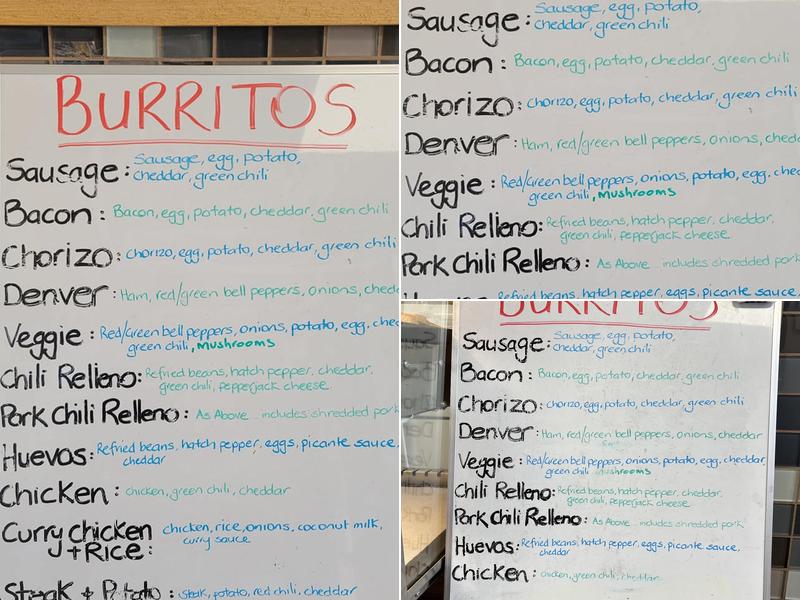 BURRITOS
Sausage: Sausage, egg, potato,
cheddar, green chili
Bacon: Bacon, egg, potato, cheddar, green chili
Chorizo: chorizo, egg, potato, cheddar, green chili
Denver: Ham, red/green bell peppers, onions, ched
Veggie: Red/Green bell peppers, onions, potato, egg, ched
green chili, mushrooms
Chili Relleno: Refried beans, hatch pepper, cheddar,
green chili, pepperjack cheese
Pork Chili Relleno: As Above includes shredded pork
Huevos: Refried beans, hatch pepper, eggs, picante sauce,
cheddar
Chicken: chicken, green chili, cheddar
Curry chicken chicken, rice, onions, coconut milk,
+Rice: curry sauce
Steak + Potato: steak, potato, red chili, cheddar
Sausage: Sausage, egg, potato,
cheddar, green chili
Bacon: Bacon, egg, potato, cheddar, green chili
Chorizo: chorizo, egg, potato, cheddar, green chili
Denver: Ham, red/green bell peppers, onions, chedd
Veggie: Red/Green bell peppers, onions, potato, egg, ched
green chili, mushrooms
Chili Relleno: Refried beans, hatch pepper, cheddar,
green chili, pepperjack cheese
Pork Chili Relleno: As Above includes shredded por
Refried beans, hatch pepper, eggs, picante sauce,
BURRITOS
Sausage: Sausage, egg, potato,
cheddar, green chili
Bacon: Bacon, egg, potato, cheddar, green chili
Chorizo: chorizo, egg, potato, cheddar, green chili
Denver: Ham, red/green bell peppers, onions, cheddar
Veggie: Red/Green bell peppers, onions, potato, egg, cheddar,
green chili mushrooms
Chili Relleno: Refried beans, hatch pepper, cheddar,
green chili, pepperjack cheese
Pork Chili Relleno: As Above includes shredded pork
Huevos: Refried beans, hatch pepper, eggs, picante sauce,
cheddar
Chicken: chicken, green chili, cheddar